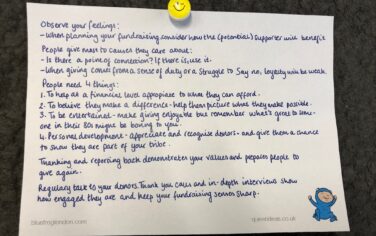 Observe your feelings:
- When planning your fundraising consider how the (potential) supporter will benefit
People give most to causes they care about:
- Is there a point of connection? If there is, use it.
- When giving comes from a sense of duty or a struggle to say no, loyalty will be weak.
People need 4 things:
1. To help at a financial level appropriate to what they can afford.
2. To believe they make a difference - help them picture what they make possible.
3. To be entertained - make giving enjoyable but remember what's great to some-
one in their 80s might be boring to you.
4. Personal development - appreciate and recognise donors - and give them a chance
to show they are part of your tribe.
Thanking and reporting back demonstrate your values and prepares people to
give again.
Regularly talk to your donors. Thank you calls and in-depth interviews show
how engaged they are and keep your fundraising senses sharp.
bluefroglondon.com
queerideas.co.uk